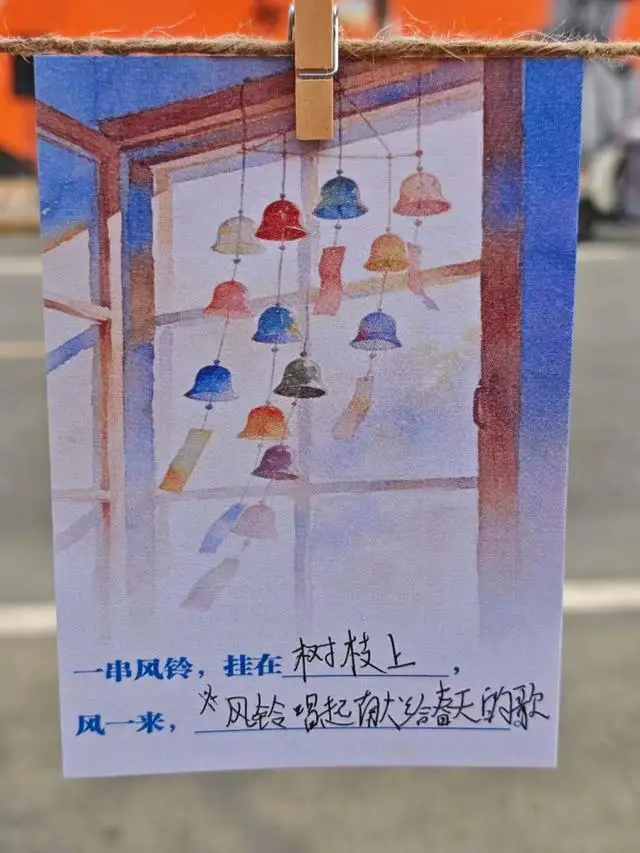 一串风铃，挂在树枝上，
风一来，风铃唱起献给春天的歌